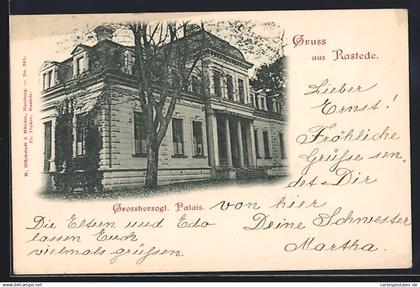 Gruss
aus Rastede.
M. Glückstadt & Münden, Hamburg. — No. 261.
Fr. Rastede.
Grossherzogl. Palais.
Lieber
Ernst!
Fröhliche
Grüße sen
det Dir
von hier
Deine Schwester
Martha.
Die Eltern und Edo
lassen Euch
vielmals grüßen.